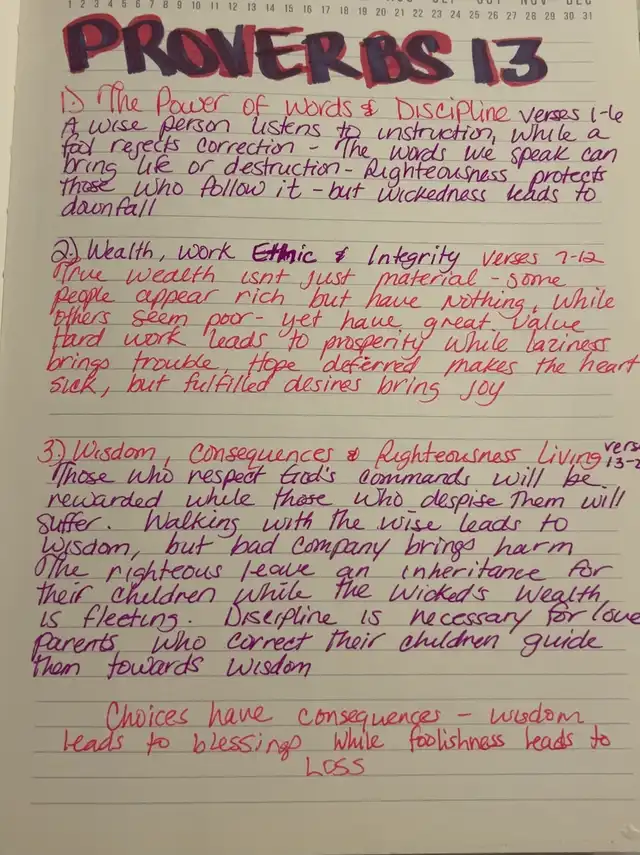 1 2 3 4 5 6 7 8 9 10 11 12 13 14 15 16 17 18 19 20 21 22 23 24 25 26 27 28 29 30 31
PROVERBS 13
1.) The Power of words & Discipline verses 1-6
A wise person listens to instruction, while a
fool rejects correction - The words we speak can
bring life or destruction - Righteousness protects
those who follow it - but wickedness leads to
downfall
2.) Wealth, work Ethic & Integrity verses 7-12
True wealth isnt just material - some
people appear rich but have nothing, while
others seem poor - yet have great value
Hard work leads to prosperity while laziness
brings trouble, Hope deferred makes the heart
sick, but fulfilled desires bring joy
3.) Wisdom, Consequences & Righteousness Living vers
13-2
Those who respect God's commands will be
rewarded while those who despise them will
suffer. Walking with the wise leads to
wisdom, but bad company brings harm
The righteous leave an inheritance for
their children while the wicked's wealth
is fleeting. Discipline is necessary for love
parents who correct their children guide
them towards wisdom
Choices have consequences - wisdom
leads to blessings while foolishness leads to
Loss